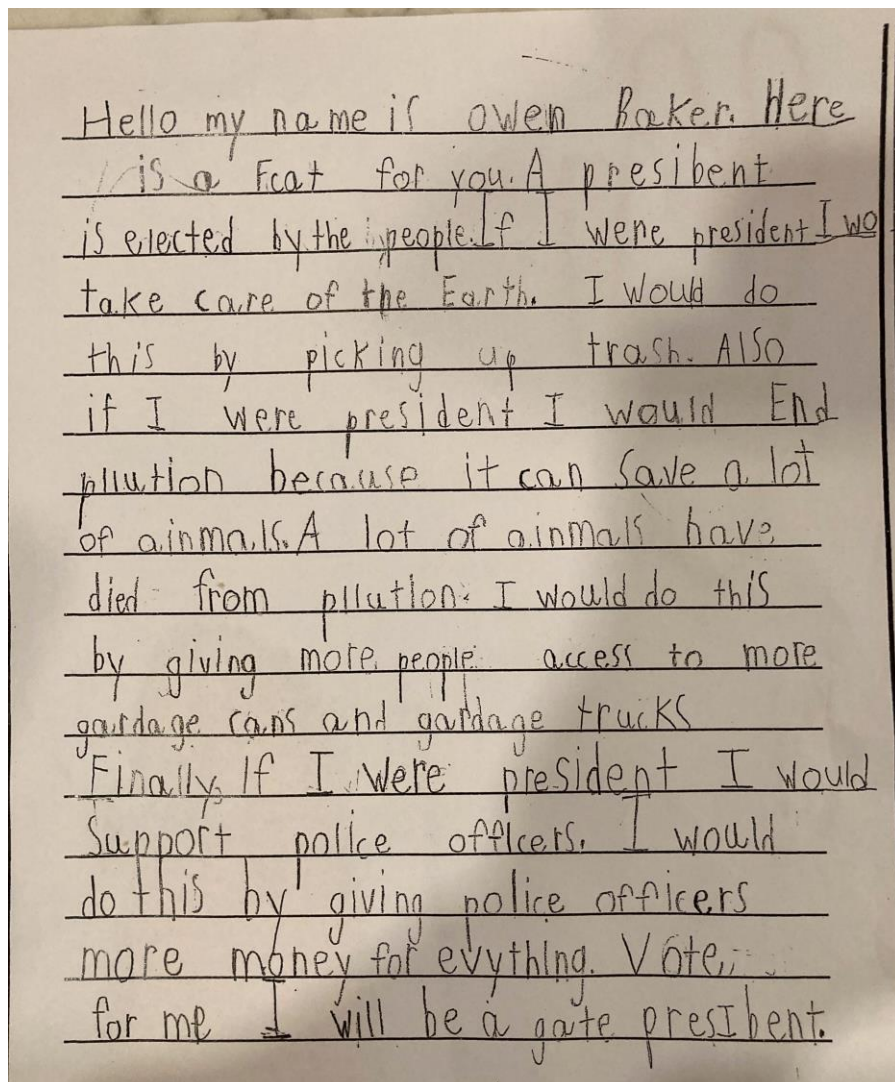 Hello my name is owen Baker. Here
is a Fcat for you. A presibent
is elected by the people. If I were president I wo
take care of the Earth. I would do
this by picking up trash. Also
if I were president I would End
pllution because it can save a lot
of ainmals. A lot of ainmals have
died from pllution. I would do this
by giving more people access to more
gardage cans and gardage trucks
Finally, If I were president I would
Support police officers. I would
do this by giving police officers
more money for evything. Vote
for me I will be a gate presIbent.